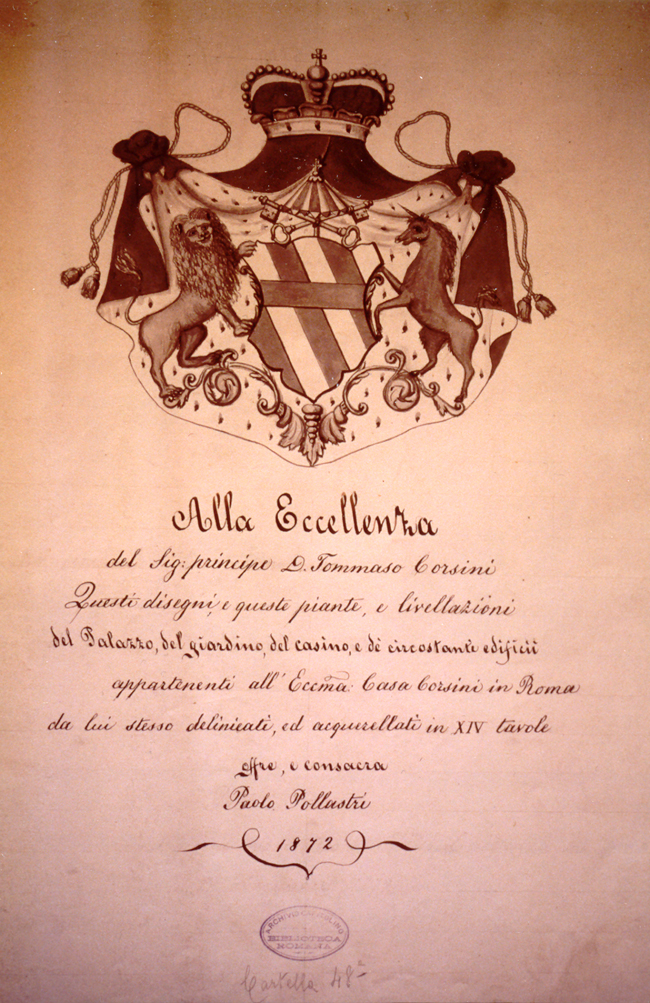 Alla Eccellenza
del Sig: principe D. Tommaso Corsini
Questi disegni, e queste piante, e livellazioni
del Palazzo, del giardino, del casino, e dè circostanti edificii
appartenenti all' Eccma: Casa Corsini in Roma
da lui stesso delineati, ed acquerellati in XIV tavole
offre, e consacra
Paolo Pollastri
1872
ARCHIVIO CAPITOLINO
BIBLIOTECA
ROMANA
Cartella 48